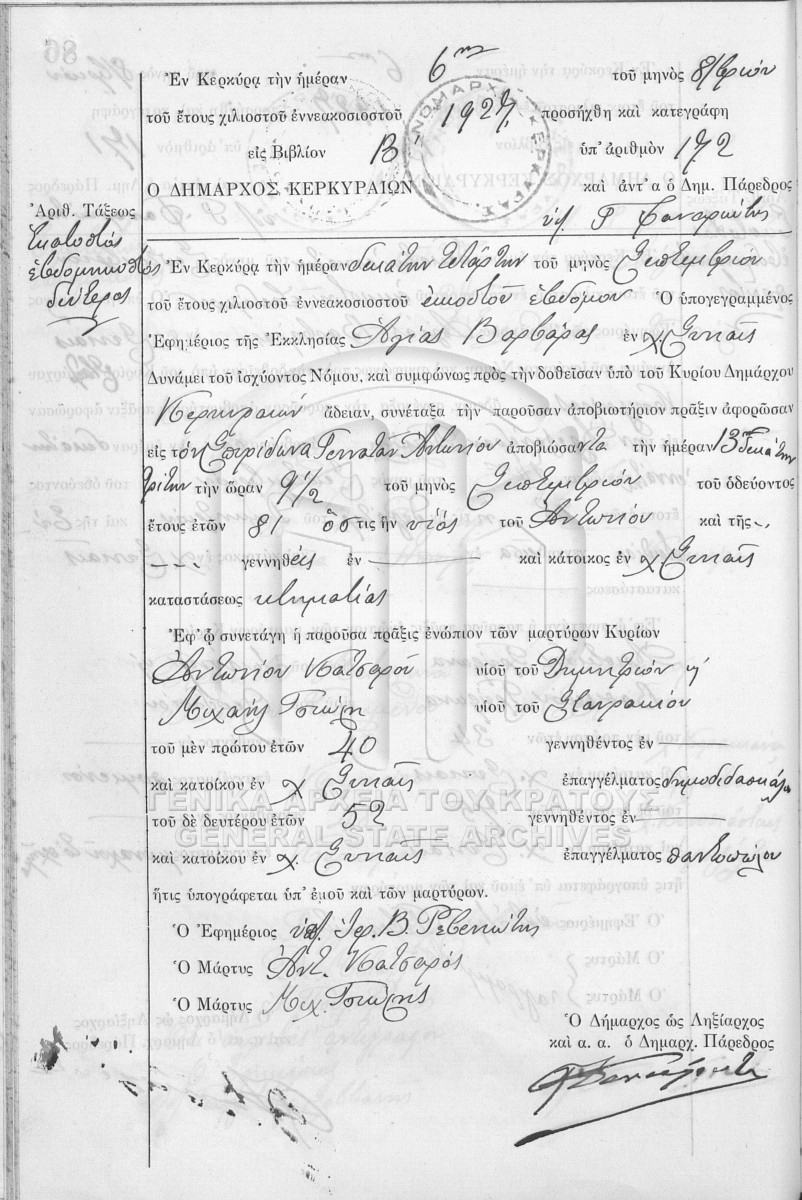 Ἐν Κερκύρᾳ τὴν ἡμέραν 6ην τοῦ μηνὸς 8/βρίου
τοῦ ἔτους χιλιοστοῦ ἐννεακοσιοστοῦ 1927, προσήχθη καὶ κατεγράφη
εἰς Βιβλίον Β ὑπ' ἀριθμὸν 172
Ο ΔΗΜΑΡΧΟΣ ΚΕΡΚΥΡΑΙΩΝ καὶ ἀντ' α ὁ Δημ. Πάρεδρος
ΝΟΜΑΡΧ ΚΕΡΚΥΡΑΣ
Ἀριθ. Τάξεως
Ἑκατοστὸς
ἑβδομηκοστὸς
δεύτερος
Ἐν Κερκύρᾳ τὴν ἡμέραν δεκάτην τετάρτην τοῦ μηνὸς Σεπτεμβρίου
τοῦ ἔτους χιλιοστοῦ ἐννεακοσιοστοῦ εἰκοστοῦ ἑβδόμου Ὁ ὑπογεγραμμένος
Ἐφημέριος τῆς Ἐκκλησίας Ἁγίας Βαρβάρας ἐν χ. Σιναῖς
Δυνάμει τοῦ ἰσχύοντος Νόμου, καὶ συμφώνως πρὸς τὴν δοθεῖσαν ὑπὸ τοῦ Κυρίου Δημάρχου
Κερκυραίων ἄδειαν, συνέταξα τὴν παροῦσαν ἀποβιωτήριον πρᾶξιν ἀφορῶσαν
εἰς τὸν Σπυρίδωνα Γεννατᾶν Ἀντωνίου ἀποβιώσαντα τὴν ἡμέραν 13ην δεκάτην
τρίτην τὴν ὥραν 9 1/2 τοῦ μηνὸς Σεπτεμβρίου τοῦ ὁδεύοντος
ἔτους ἐτῶν 81 ὅστις ἦν υἱὸς τοῦ Ἀντωνίου καὶ τῆς
γεννηθεὶς ἐν καὶ κάτοικος ἐν χ. Σιναῖς
καταστάσεως κτηματίας
Ἐφ' ᾧ συνετάγη ἡ παροῦσα πρᾶξις ἐνώπιον τῶν μαρτύρων Κυρίων
Ἀντωνίου Κατσαροῦ υἱοῦ τοῦ Δημητρίου ἢ
Μιχαὴλ υἱοῦ τοῦ Σταυρακίου
τοῦ μὲν πρώτου ἐτῶν 40 γεννηθέντος ἐν
καὶ κατοίκου ἐν χ Σιναῖς ἐπαγγέλματος δημοδιδασκάλου
ΓΕΝΙΚΑ ΑΡΧΕΙΑ ΤΟΥ ΚΡΑΤΟΥΣ
τοῦ δὲ δευτέρου ἐτῶν 52 γεννηθέντος ἐν
GENERAL STATE ARCHIVES
καὶ κατοίκου ἐν χ. Σιναῖς ἐπαγγέλματος παντοπώλου
ἥτις ὑπογράφεται ὑπ' ἐμοῦ καὶ τῶν μαρτύρων.
Ὁ Ἐφημέριος Ἱερ. Β.
Ὁ Μάρτυς Ἀντ. Κατσαρὸς
Ὁ Μάρτυς Μιχ.
Ὁ Δήμαρχος ὡς Ληξίαρχος
καὶ α. α. ὁ Δημαρχ. Πάρεδρος